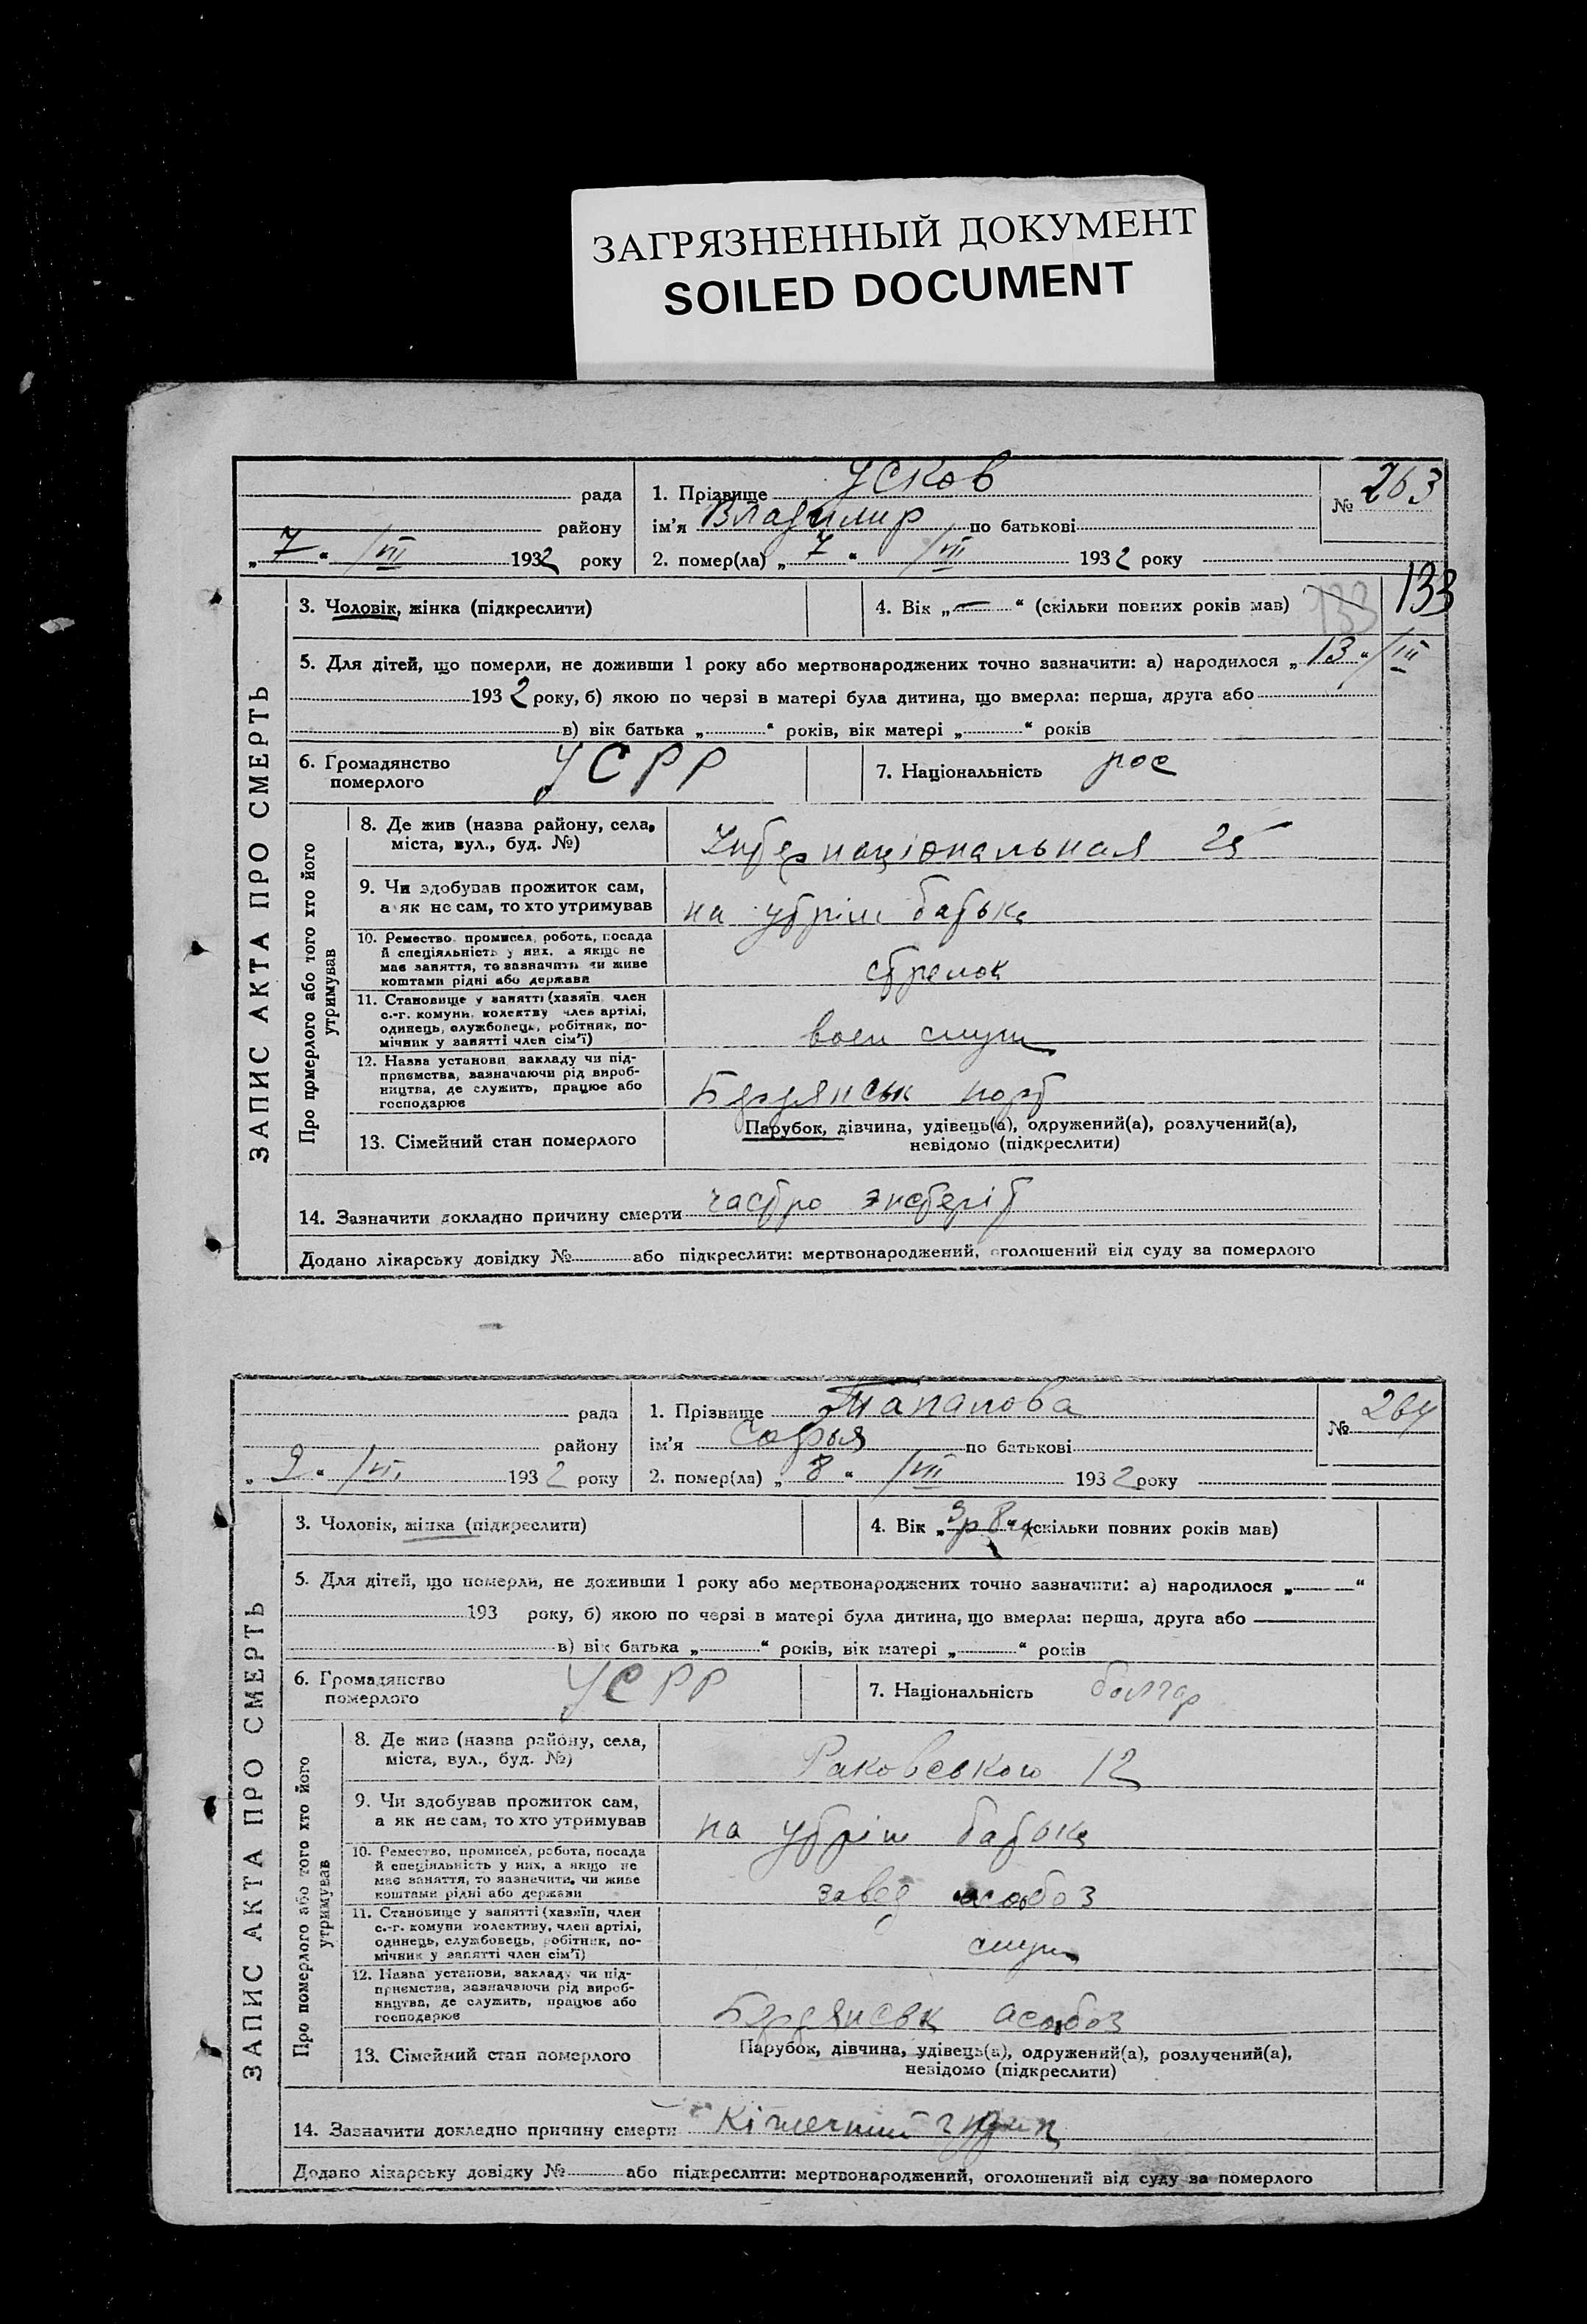 ЗАГРЯЗНЕННЫЙ ДОКУМЕНТ
SOILED DOCUMENT
рада
району
„ 7 “ /VII 1932 року
1. Прізвище Усков
ім'я Владимир по батькові
2. помер(ла) „ 7 “ /VII 1932 року
№ 263
133
ЗАПИС АКТА ПРО СМЕРТЬ
3. Чоловік, жінка (підкреслити)
4. Вік „ — “ (скільки повних років мав) 133
5. Для дітей, що померли, не доживши 1 року або мертвонароджених точно зазначити: а) народилося „ 13 “ /III
1932 року, б) якою по черзі в матері була дитина, що вмерла: перша, друга або
в) вік батька „ “ років, вік матері „ “ років
6. Громадянство
померлого
УСРР
7. Національність рос
Про померлого або того хто його
утримував
8. Де жив (назва району, села,
міста, вул., буд. №)
Інтернаціональная 25
9. Чи здобував прожиток сам,
а як не сам, то хто утримував
на утрим батька
10. Ремество, промисел, робота, посада
й спеціяльність у них, а якщо не
має заняття, то зазначити чи живе
коштами рідні або держави
стрелок
11. Становище у занятті (хазяїн, член
с.-г. комуни, колективу, член артілі,
одинець, службовець, робітник, по-
мічник у занятті член сім'ї)
воен служ
12. Назва установи, закладу чи під-
приємства, зазначаючи рід вироб-
ництва, де служить, працює або
господарює
Бердянськ порт
13. Сімейний стан померлого
Парубок, дівчина, удівець(а), одружений(а), розлучений(а),
невідомо (підкреслити)
14. Зазначити докладно причину смерти гастро энтеріт
Додано лікарську довідку № або підкреслити: мертвонароджений, оголошений від суду за померлого
рада
району
„ 9 “ /VII 1932 року
1. Прізвище
ім'я Софья по батькові
2. помер(ла) „ 8 “ /VII 1932 року
№ 264
ЗАПИС АКТА ПРО СМЕРТЬ
3. Чоловік, жінка (підкреслити)
4. Вік „ 3р 8 “ (скільки повних років мав)
5. Для дітей, що померли, не доживши 1 року або мертвонароджених точно зазначити: а) народилося „ — “
193 року, б) якою по черзі в матері була дитина, що вмерла: перша, друга або
в) вік батька „ “ років, вік матері „ “ років
6. Громадянство
померлого
УСРР
7. Національність болгар
Про померлого або того хто його
утримував
8. Де жив (назва району, села,
міста, вул., буд. №)
Раковського 12
9. Чи здобував прожиток сам,
а як не сам, то хто утримував
на утрим батька
10. Ремество, промисел, робота, посада
й спеціяльність у них, а якщо не
має заняття, то зазначити, чи живе
коштами рідні або держави
завед асобоз
11. Становище у занятті (хазяїн, член
с.-г. комуни колективу, член артілі,
одинець, службовець, робітник, по-
мічник у занятті член сім'ї)
служ
12. Назва установи, закладу чи під-
приємства, зазначаючи рід вироб-
ництва, де служить, працює або
господарює
Бердянськ асобоз
13. Сімейний стан померлого
Парубок, дівчина, удівець(а), одружений(а), розлучений(а),
невідомо (підкреслити)
14. Зазначити докладно причину смерти Кішечний грип
Додано лікарську довідку № або підкреслити: мертвонароджений, оголошений від суду за померлого